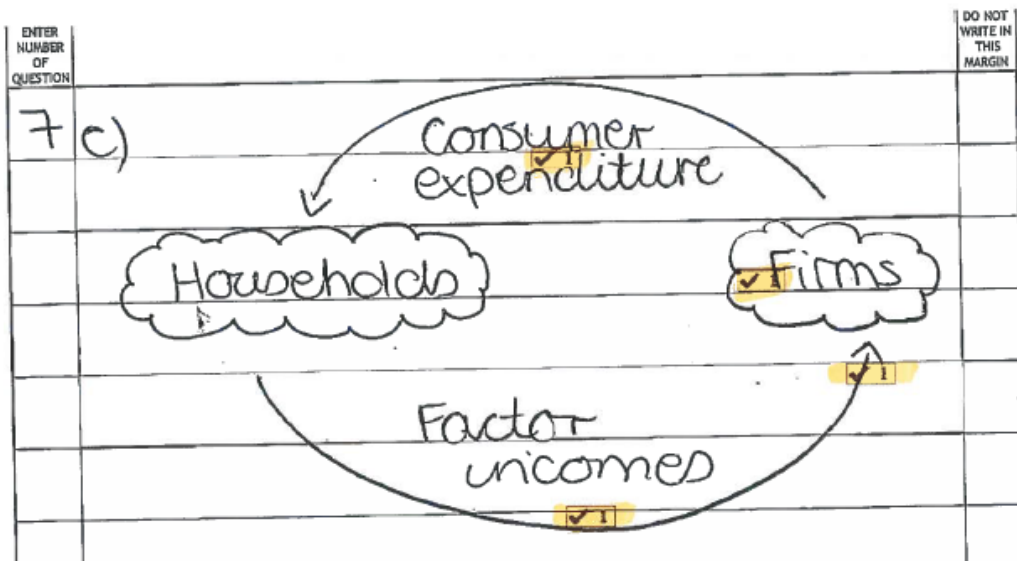 ENTER
NUMBER
OF
QUESTION
DO NOT
WRITE IN
THIS
MARGIN
7 c)
Consumer
✓ 1
expenditure
Households
✓ 1 Firms
✓ 1
Factor
incomes
✓ 1